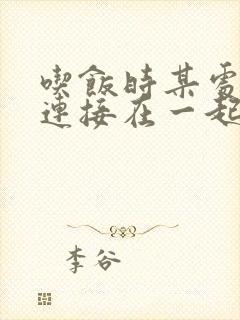 喫飯時某處
連接在一起
李谷